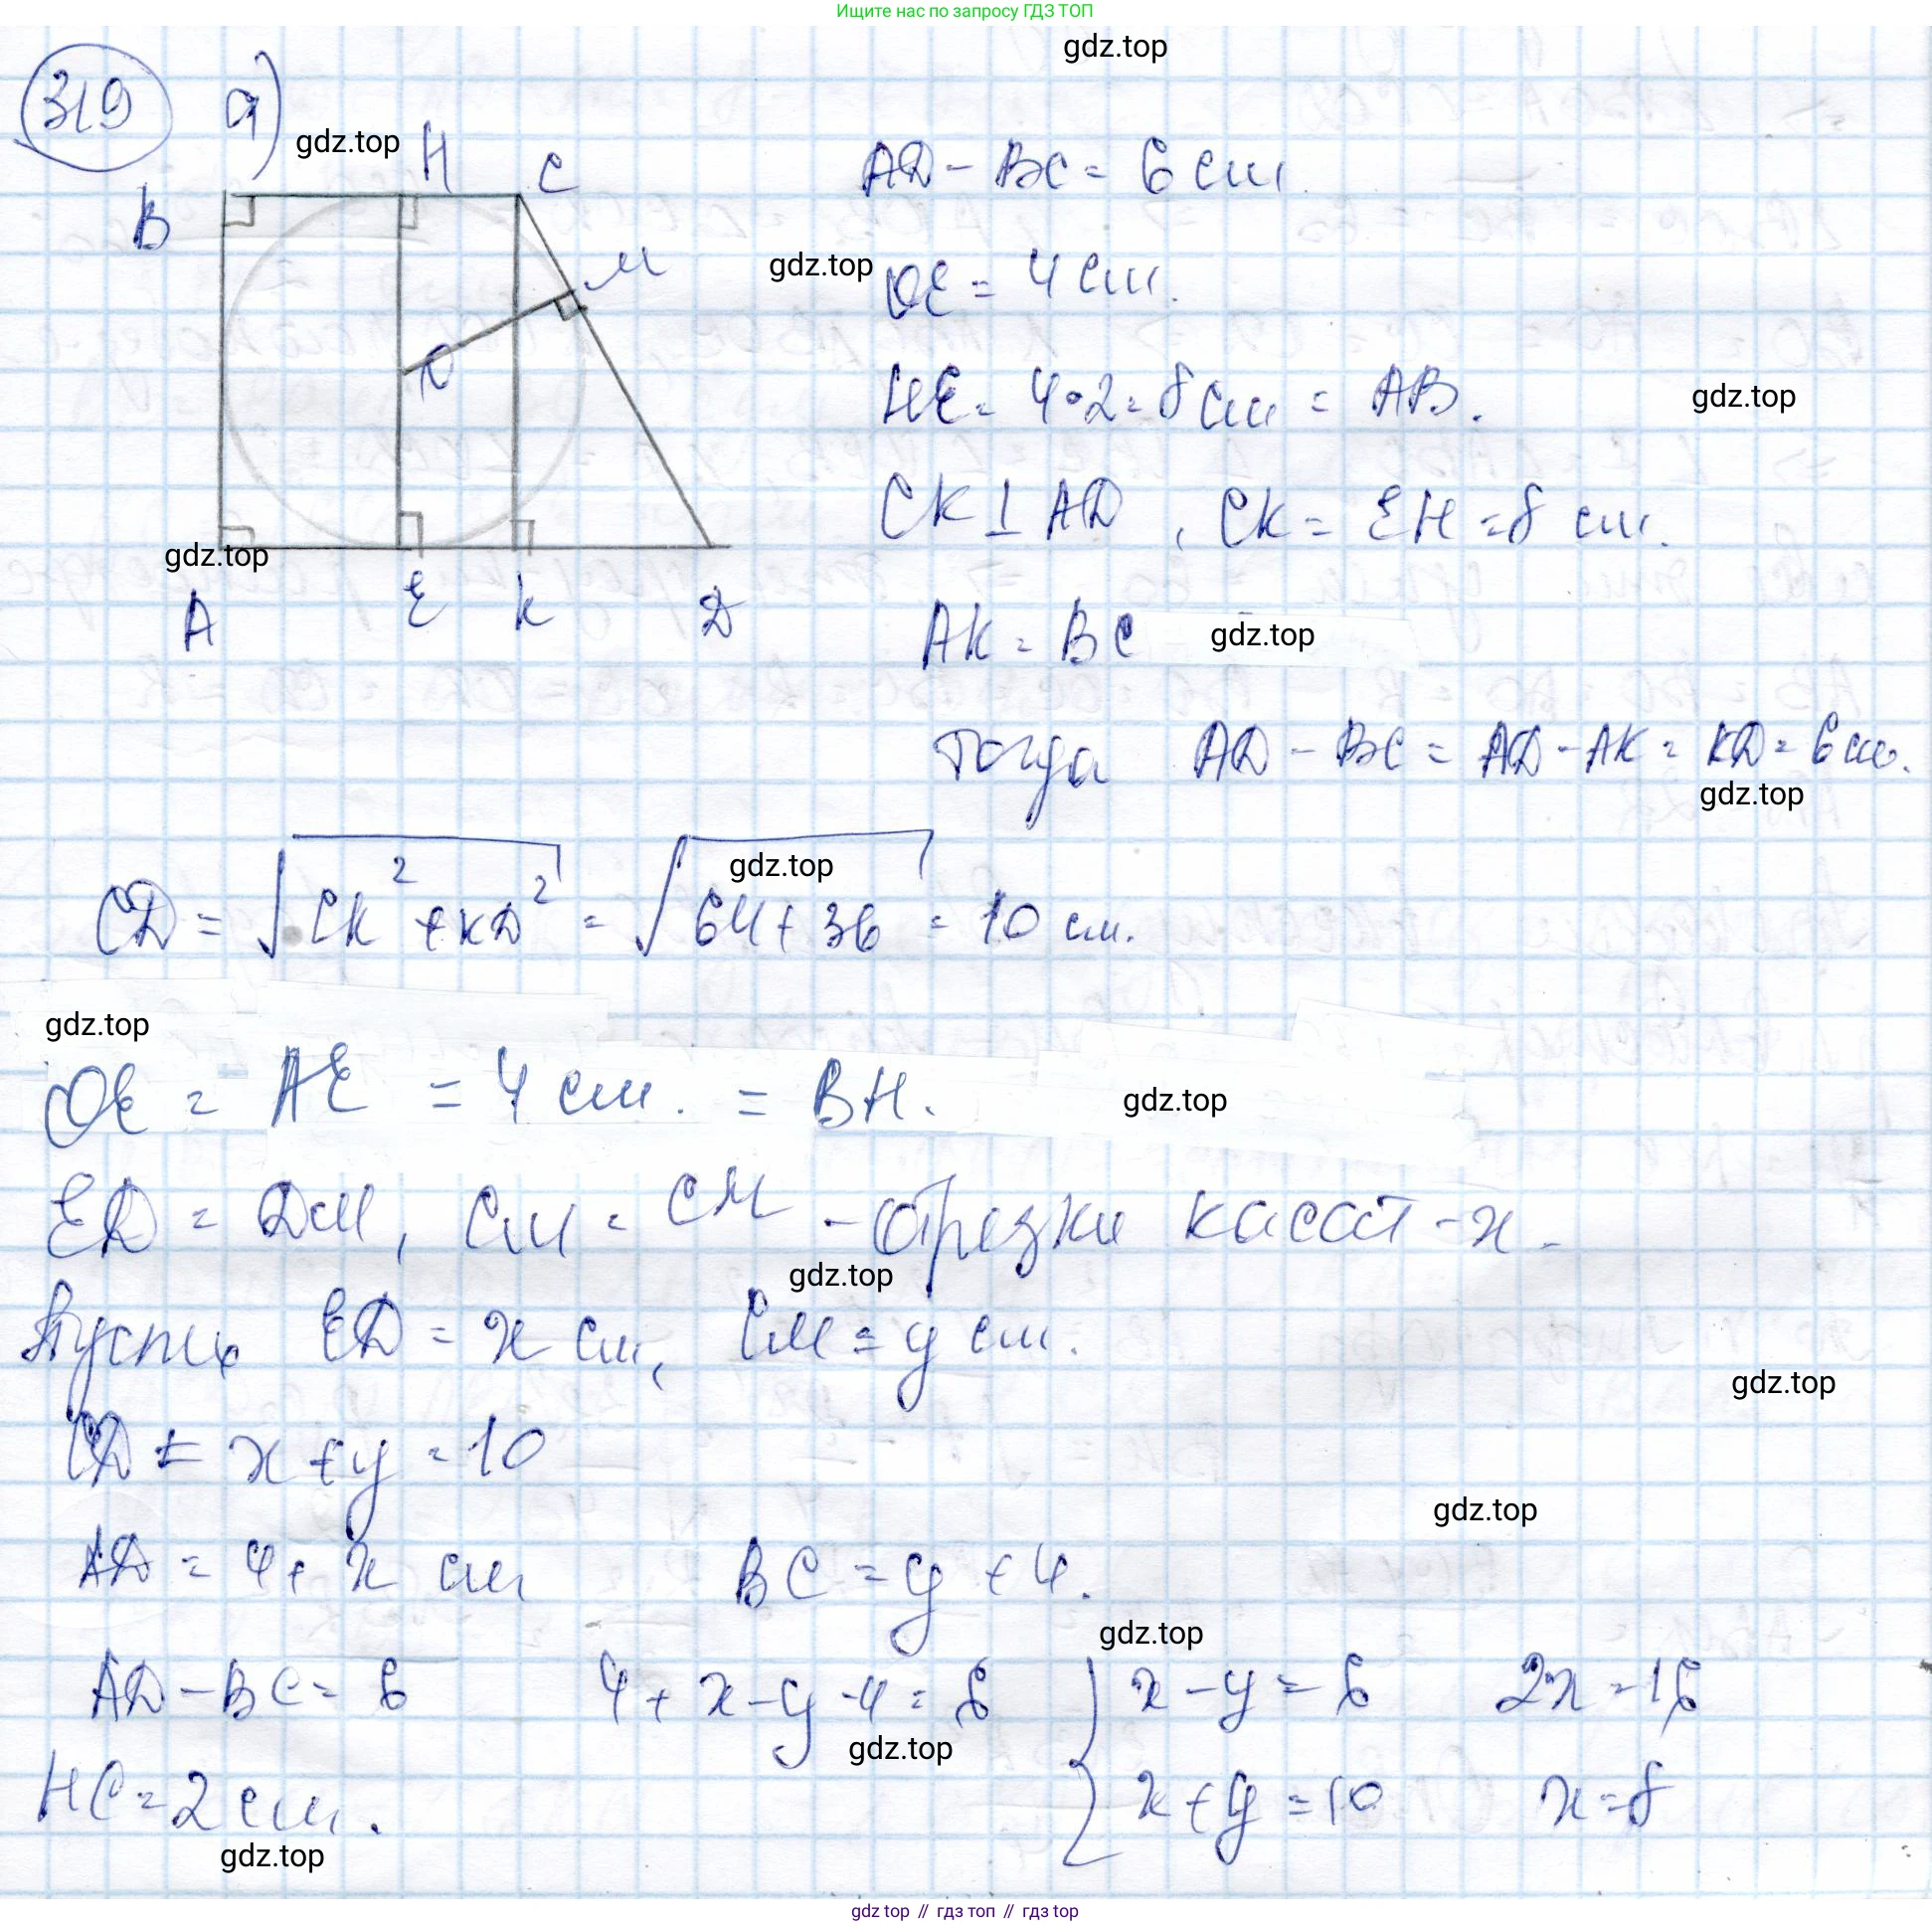 Ищите нас по запросу ГДЗ ТОП
gdz.top
319 а)
gdz.top
H C
B
AD - BC = 6 см
M
gdz.top
OE = 4 см.
O
HE = 4 · 2 = 8 см = AB.
gdz.top
CK ⊥ AD , CK = EH = 8 см.
gdz.top
A E K D
AK = BC
gdz.top
Тогда AD - BC = AD - AK = KD = 6 см.
gdz.top
gdz.top
CD = √CK² + KD² = √64 + 36 = 10 см.
gdz.top
OE = AE = 4 см. = BH.
gdz.top
ED = DM, CM = CM - отрезки касат-х.
gdz.top
Пусть ED = x см, CM = y см.
gdz.top
CD = x + y = 10
gdz.top
AD = 4 + x см BC = y + 4.
gdz.top
AD - BC = 6 4 + x - y - 4 = 6 { x - y = 6 2x = 16
gdz.top
HC = 2 см. x + y = 10 x = 8
gdz.top
gdz top // гдз топ // гдз top